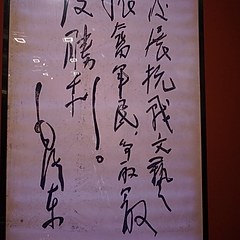 发展抗战文艺，
振奋军民，争取最
后胜利。
毛泽东